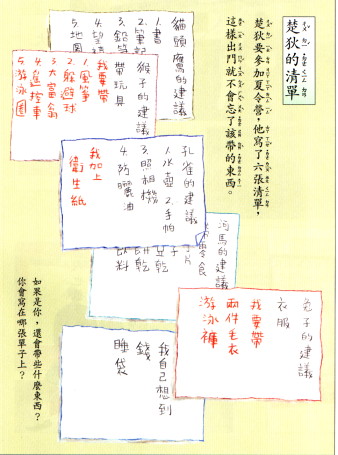 楚狄的清單
楚狄要參加夏令營，他寫了六張清單，
這樣出門就不會忘了該帶的東西。
貓頭鷹的建議
1.書
2.筆記
3.鉛筆
4.望
5.地圖
猴子的建議
帶玩具
我要帶
1.風箏
2.躲避球
3.大富翁
4.遙控車
5.游泳圈
孔雀的建議
1.水壺 2.手帕
3.照相機
4.防曬油
我加上
衛生紙
河馬的建議
零食
片
豆乾
餅乾
飲料
兔子的建議
衣服
我要帶
兩件毛衣
游泳褲
我自己想到
錢
睡袋
如果是你，還會帶些什麼東西？
你會寫在哪張單子上？